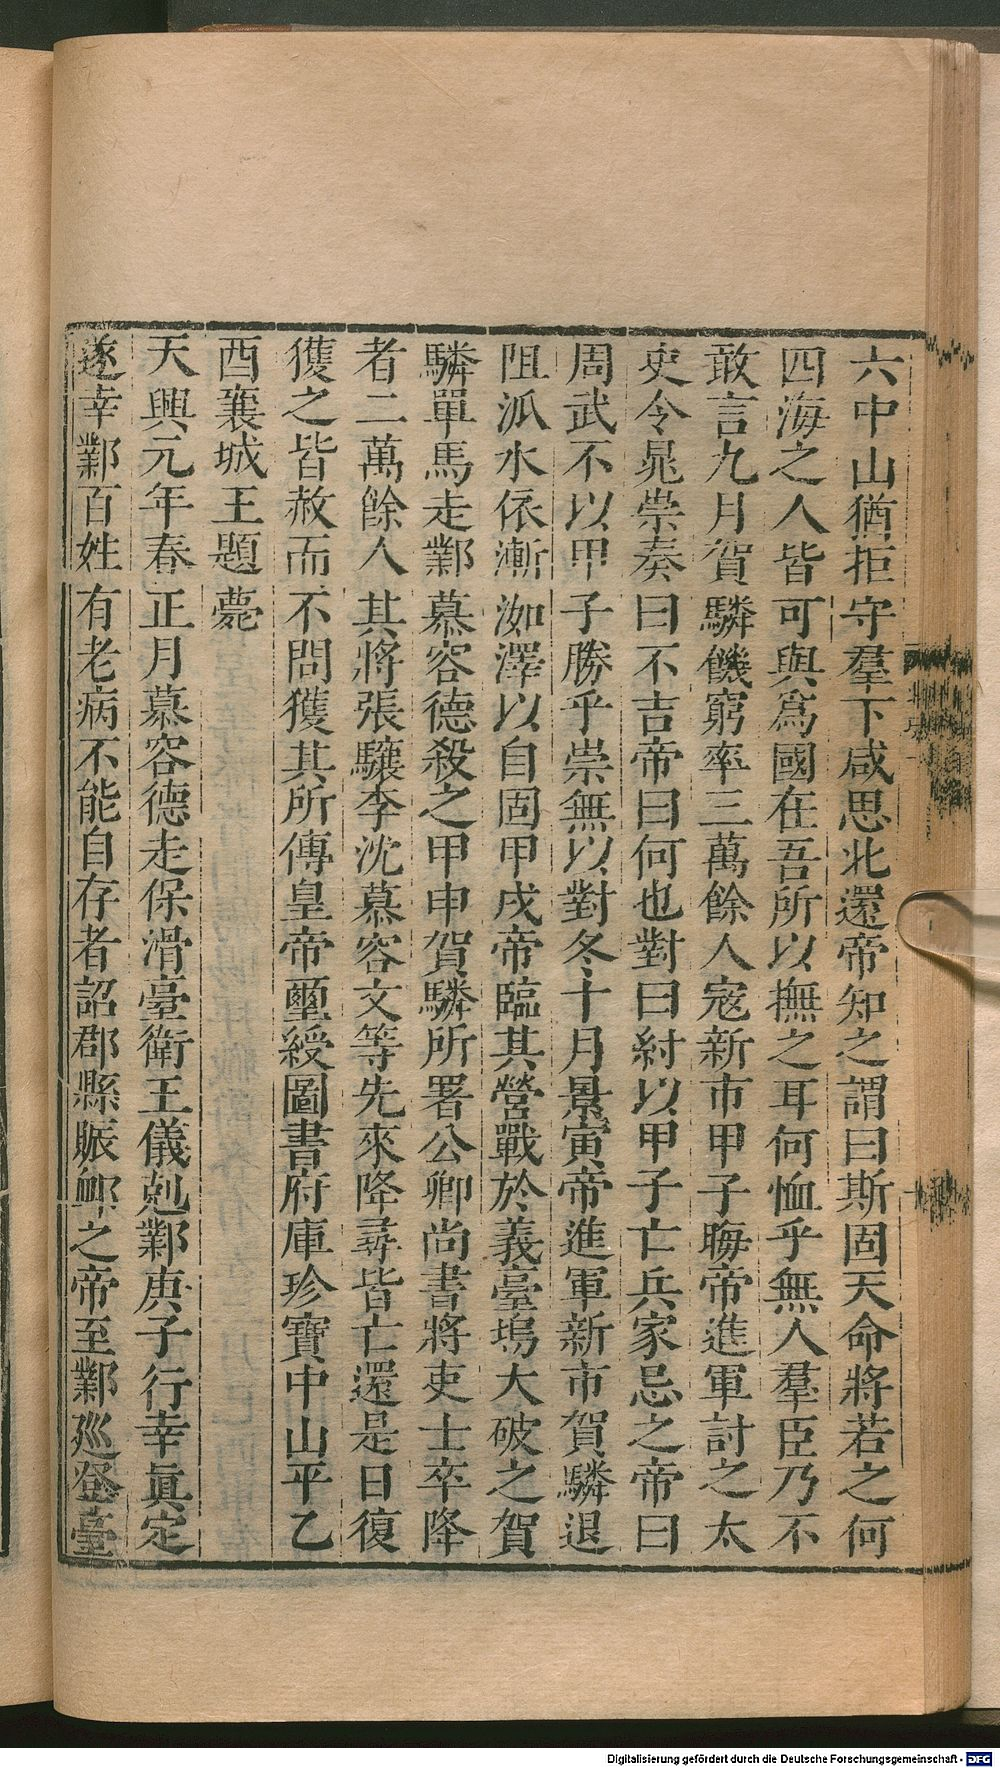 六中山猶拒守羣下咸思北還帝知之謂曰斯固天命將若之何
四海之人皆可與爲國在吾所以撫之耳何恤乎無人羣臣乃不
敢言九月賀驎饑窮率三萬餘人寇新市甲子晦帝進軍討之太
史令晁崇奏曰不吉帝曰何也對曰紂以甲子亡兵家忌之帝曰
周武不以甲子勝乎崇無以對冬十月景寅帝進軍新市賀驎退
阻泒水依漸洳澤以自固甲戌帝臨其營戰於義臺塢大破之賀
驎單馬走鄴慕容德殺之甲申賀驎所署公卿尚書將吏士卒降
者二萬餘人其將張驤李沈慕容文等先來降尋皆亡還是日復
獲之皆赦而不問獲其所傳皇帝璽綬圖書府庫珍寶中山平乙
酉襄城王題薨
天興元年春正月慕容德走保滑臺衛王儀剋鄴庚子行幸眞定
遂幸鄴百姓有老病不能自存者詔郡縣賑卹之帝至鄴廵登臺
Digitalisierung gefördert durch die Deutsche Forschungsgemeinschaft - DFG